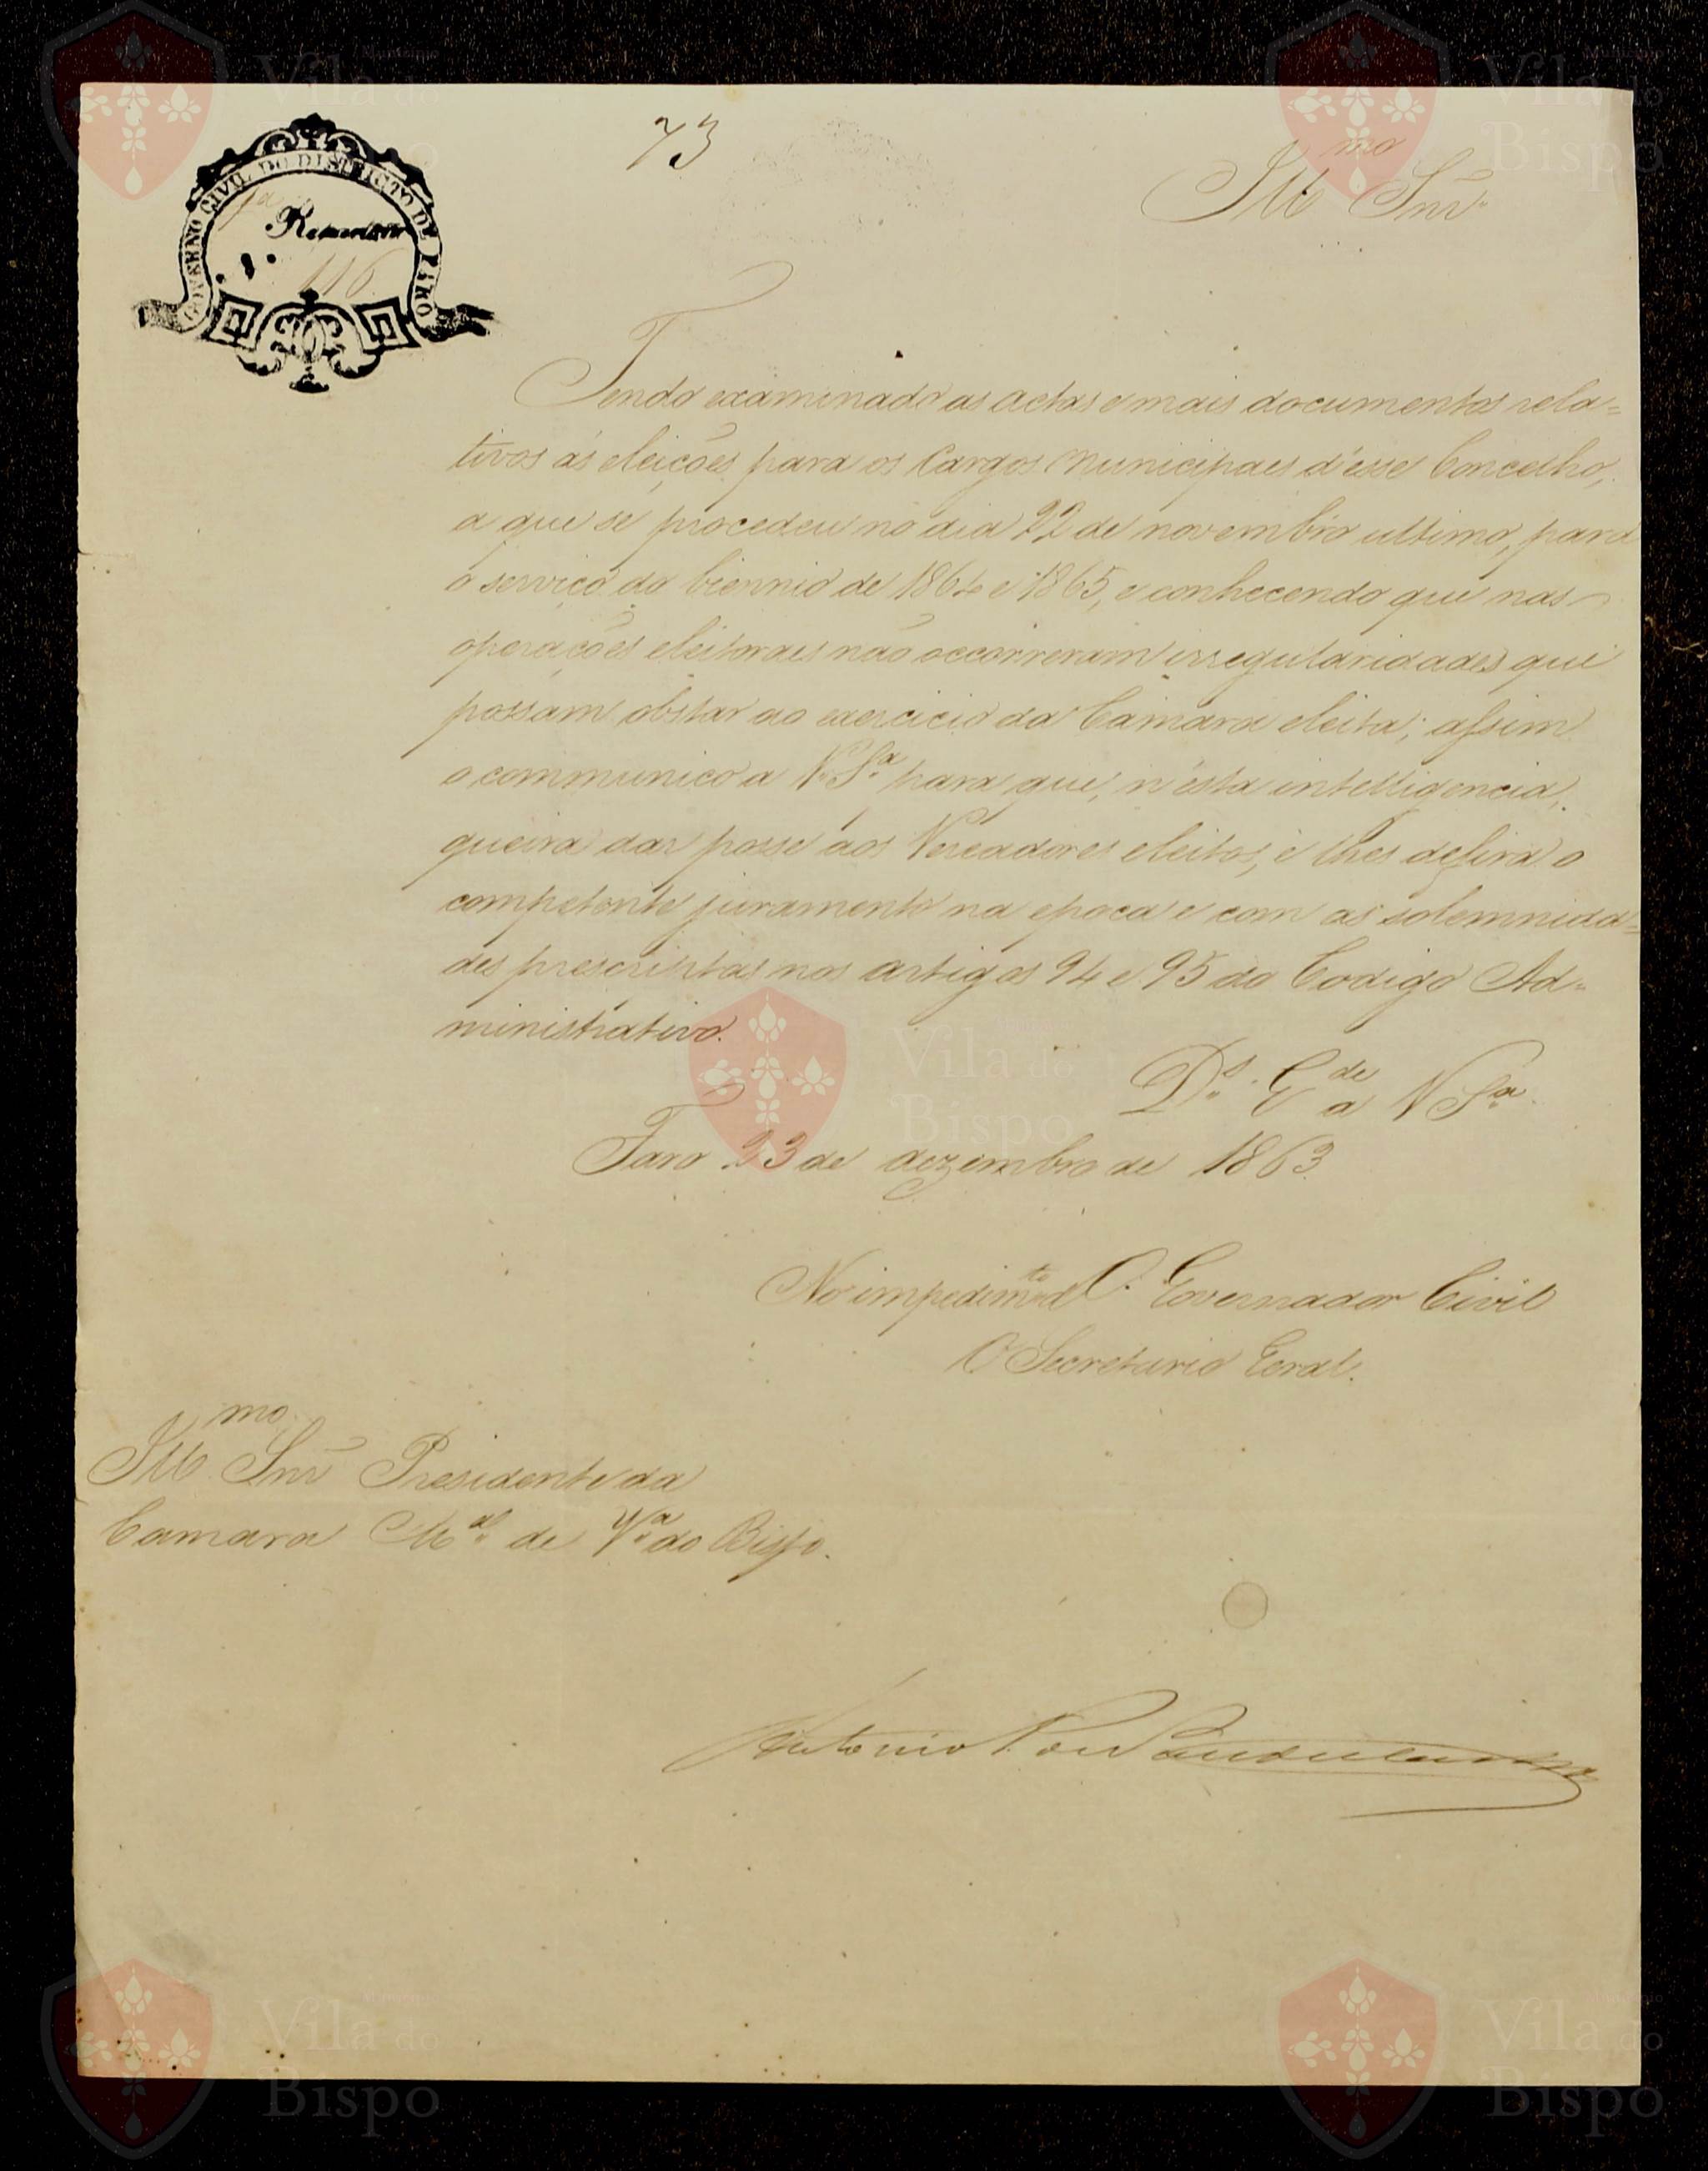 73
GOVERNO CIVIL DO DISTRICTO DE FARO
1ª
Repartição
116
Illmo Snr.
Tendo examinado as actas e mais documentos rela=
tivos ás eleições para os Cargos Municipaes d'esse Concelho,
a que se procedeu no dia 22 de novembro ultimo, para
o serviço do biennio de 1864 e 1865, e conhecendo que nas
operações eleitoraes não occorreram irregularidades que
possam obstar ao exercicio da Camara eleita; assim
o communico a V. Sª para que, n'esta intelligencia,
queira dar posse aos Vereadores eleitos, e lhes defira o
competente juramento na epoca e com as solemnida=
des prescriptas nos artigos 94 e 95 do Codigo Ad=
ministrativo.
Ds. Gde a V Sª.
Faro 23 de dezembro de 1863
No impedimto do O. Governador Civil
O Secretario Geral.
Illmo Snr Presidente da
Camara Mal. de Vª do Bispo.
Antonio
Município
Vila do
Bispo